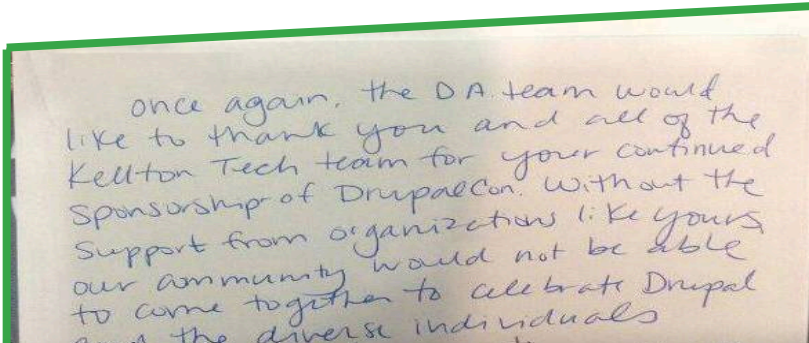 once again, the DA team would
like to thank you and all of the
Kellton Tech team for your continued
sponsorship of DrupalCon. Without the
support from organizations like yours,
our community would not be able
to come together to celebrate Drupal
and the diverse individuals